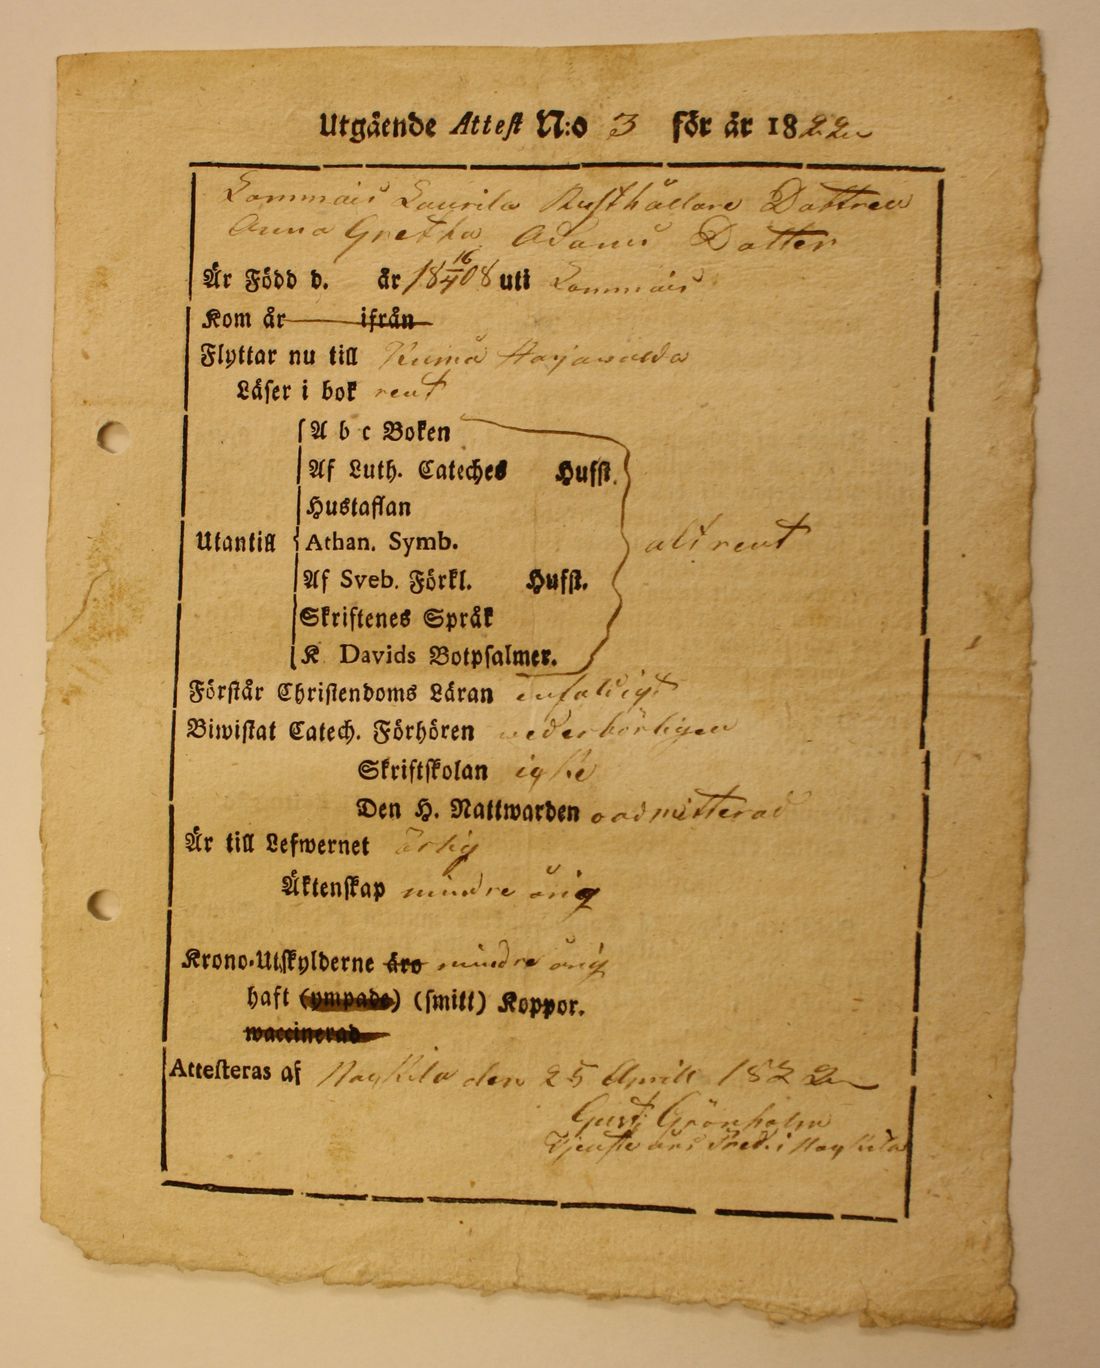 Utgående Attest N:o 3 för år 1822
Lammais Laurila Rusthållare Dottren
Anna Gretha Adams Dotter
Är Född d. år 18 16/4 08 uti Lammais
Kom år ifrån
Flyttar nu till Kumå Harjawalda
Läser i bok rent
A b c Boken
Af Luth. Cateches Hufst.
Hustaflan
Utantill Athan. Symb. alt rent
Af Sveb. Förkl. Hufst.
Skriftenes Språk
K Davids Botpsalmer.
Förstår Christendoms Läran enfaldigt
Biwistat Catech. Förhören wederbörligen
Skriftskolan icke
Den H. Nattwarden oadmitterad
Är till Lefwernet ärlig
Äktenskap mindre årig
Krono-Utskylderne äro mindre årig
haft (ympade) (smitt) Koppor.
waccinerad
Attesteras af Nakkila den 25 Aprill 1822
Gust. Grönholm
Tjenste års Pred. i Nakkila